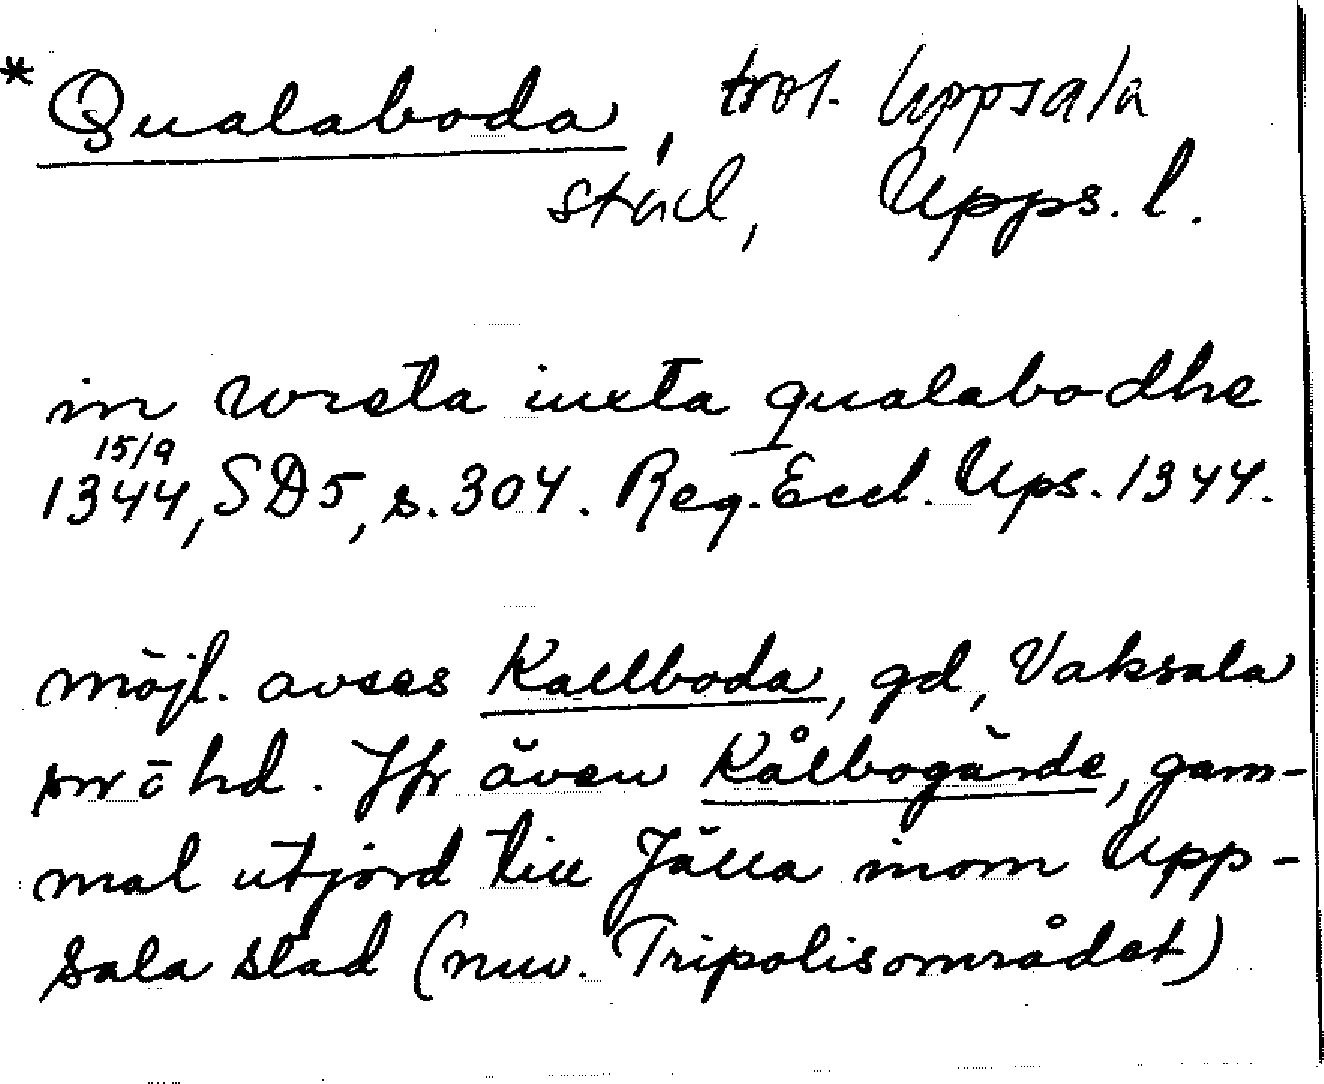 * Qualaboda, trol. Uppsala
stad, Upps. l.
in wreta iuxta qualabodhe
15/9
1344, SD5, s. 304. Reg. Eccl. Ups. 1344.
möjl. avses Kallboda, gd, Vaksala
sn ö hd. Jfr även Kålbogärde, gam-
mal utjord till Jälla inom Upp-
sala stad (nuv. Tripolisområdet)